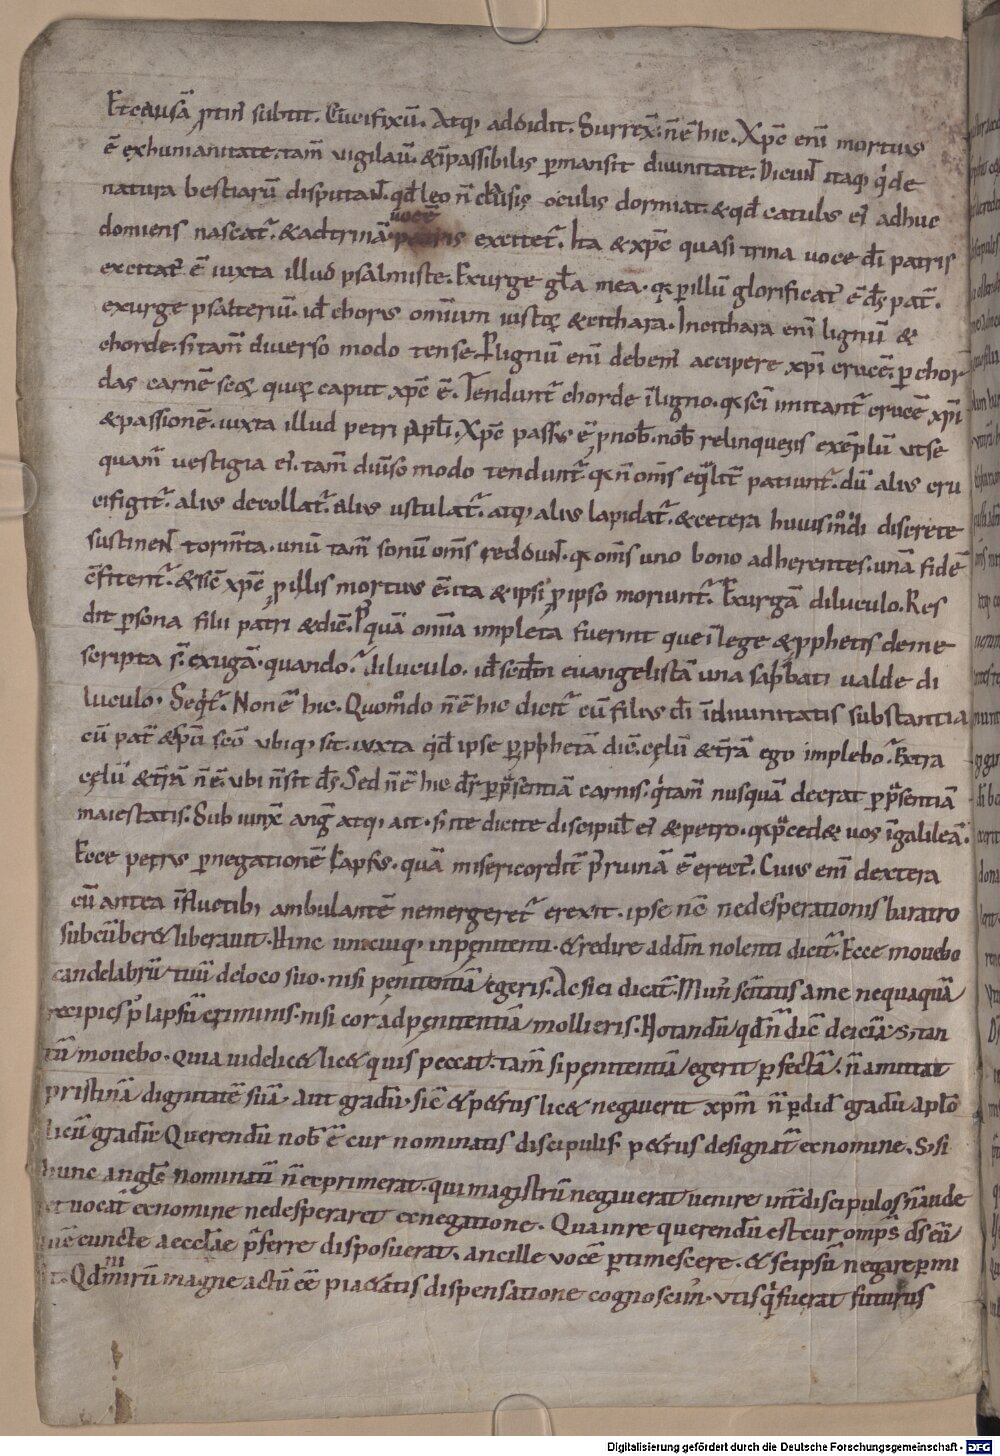 Et causā ptin̄ subtit. Crucifixū. Atq; addidit. Surrex̄. n̄ ē hic. Xp̄c eni mortuus
ē ex humanitate. tam̄ vigilau. & ip̄assibilis p̄mansit diuinitate. Dicun̄t itaq; q̇ de
natura bestiarū disputan̄t. qd̄ leo n̄ clausis oculis dormiat. & qd̄ catulus ei adhuc
voce
domiens nascat̄. & ad trinā patris excitet̄. Ita & xp̄c quasi trina uoce dī patris
excitat̄ ē iuxta illud psalmiste. Exurge gl̄a mea. q; p illū glorificat̄ ē ds̄ pat̄.
exurge psalteriū. id̄ chorus omnium iustoꝝ & cithara. In cithara eni lignū &
chorde. s; tam̄ diuerso modo tense. P lignū eni debem̄ accipere xp̄i crucē. p chor
das carnē scōꝝ quoꝝ caput xp̄c ē. Tendunt̄ chorde ī ligno. q; scī imitant̄ crucē xp̄i
& passionē. iuxta illud petri apl̄i. Xp̄c passus ē p nob̄. nob̄ relinquens exēplū vt se
quam̄ vestigia ei. tam̄ diu̅so modo tendunt̄. q; n̄ om̄s eq̄lit̄ patiunt̄. dū alius cru
cifigit̄. alius decollat̄. alius ustulat̄. atq; alius lapidat̄. & cetera huiusmōdi discrete
sustinen̄t torm̄ta. unū tam̄ sonū om̄s reddun̄t. q; om̄s uno bono adherentes. unā fidē
c̄fitent̄. & sic̄ xp̄c p illis mortuus ē. ita & ipsi p ipso moriunt̄. Exurgā diluculo. Res
dit p̄sona filii patri & dic̄. P quā omīa impleta fuerint que ī lege & pphetis de me
scripta s̄. exugā. quando. diluculo. id̄ scdm̄ euangelistā una sabbati ualde di
luculo. Seqt̄. Non ē hic. Quom̄do n̄ ē hic dicit̄ cū filius dī ī diuinitatis substantia
cū pat̄ & spū scō vbiq; sit. iuxta qd̄ ipse p pphetā dic̄. cęlū & t̄rā ego implebo. Extra
cęlū & t̄rā n̄ ē. vbi n̄ sit ds̄. Sed n̄ ē hic dr̄ p p̄sentiā carnis. q tam̄ nusquā deerat p p̄sentiā
maiestatis. Sub iunx̄ anḡ atq; ait. s; ite dicite discipul̄ ei & petro. q; p̄ced& uos ī galileā.
Ecce petrus p negationē lapsus. quā misericordit̄ p ruinā ē erect̄. Cuius eni dextera
cū antea ī fluctib; ambulantē ne mergeret̄ erexit. ipse nc̄ ne desperationis baratro
subcūber& liberauit. Hinc unicuiq; inpęnitenti. & redire ad dm̄ nolenti dicit̄. Ecce mouebo
candelabrū tuū de loco suo. nisi penitentiā egeris. Ac si ei dicat̄. Mun̄ scītatis a me nequaquā
recipies p̄ lapsū criminis. nisi cor ad pęnitentiā mollieris. Notandū qd̄ n̄ dic̄ deiciā. S; tan
tū mouebo. quia uidelic& lic& quis peccat. tam̄ si pęnitentiā egerit p̄fectā. n̄ amittat
pristinā dignitatē suā. aut gradū. sic̄ & petrus lic& negauerit xpm̄ n̄ p̄did̄ gradū aplō
licū gradū. Querendū nob̄ ē cur nominatis discipulis petrus designat̄ ex nomine. S; si
hunc angls̄ nominatī n̄ exprimerat. qui magistrū negauerat uenire int̄ discipulos n̄ aude
& uocat̄ ex nomine ne desperaret ex negatione. Qua in re querendū est cur omps̄ ds̄ eū
quē cunctę aeccl̄ae p̄ferre disposuerat. ancille vocē p̄timescere. & seipsū negare p̄mi
sit. Qd nimirū magne actū ēē pietatis dispensatione cognoscim̄. vt is q̇ fuerat futurus
Digitalisierung gefördert durch die Deutsche Forschungsgemeinschaft - DFG